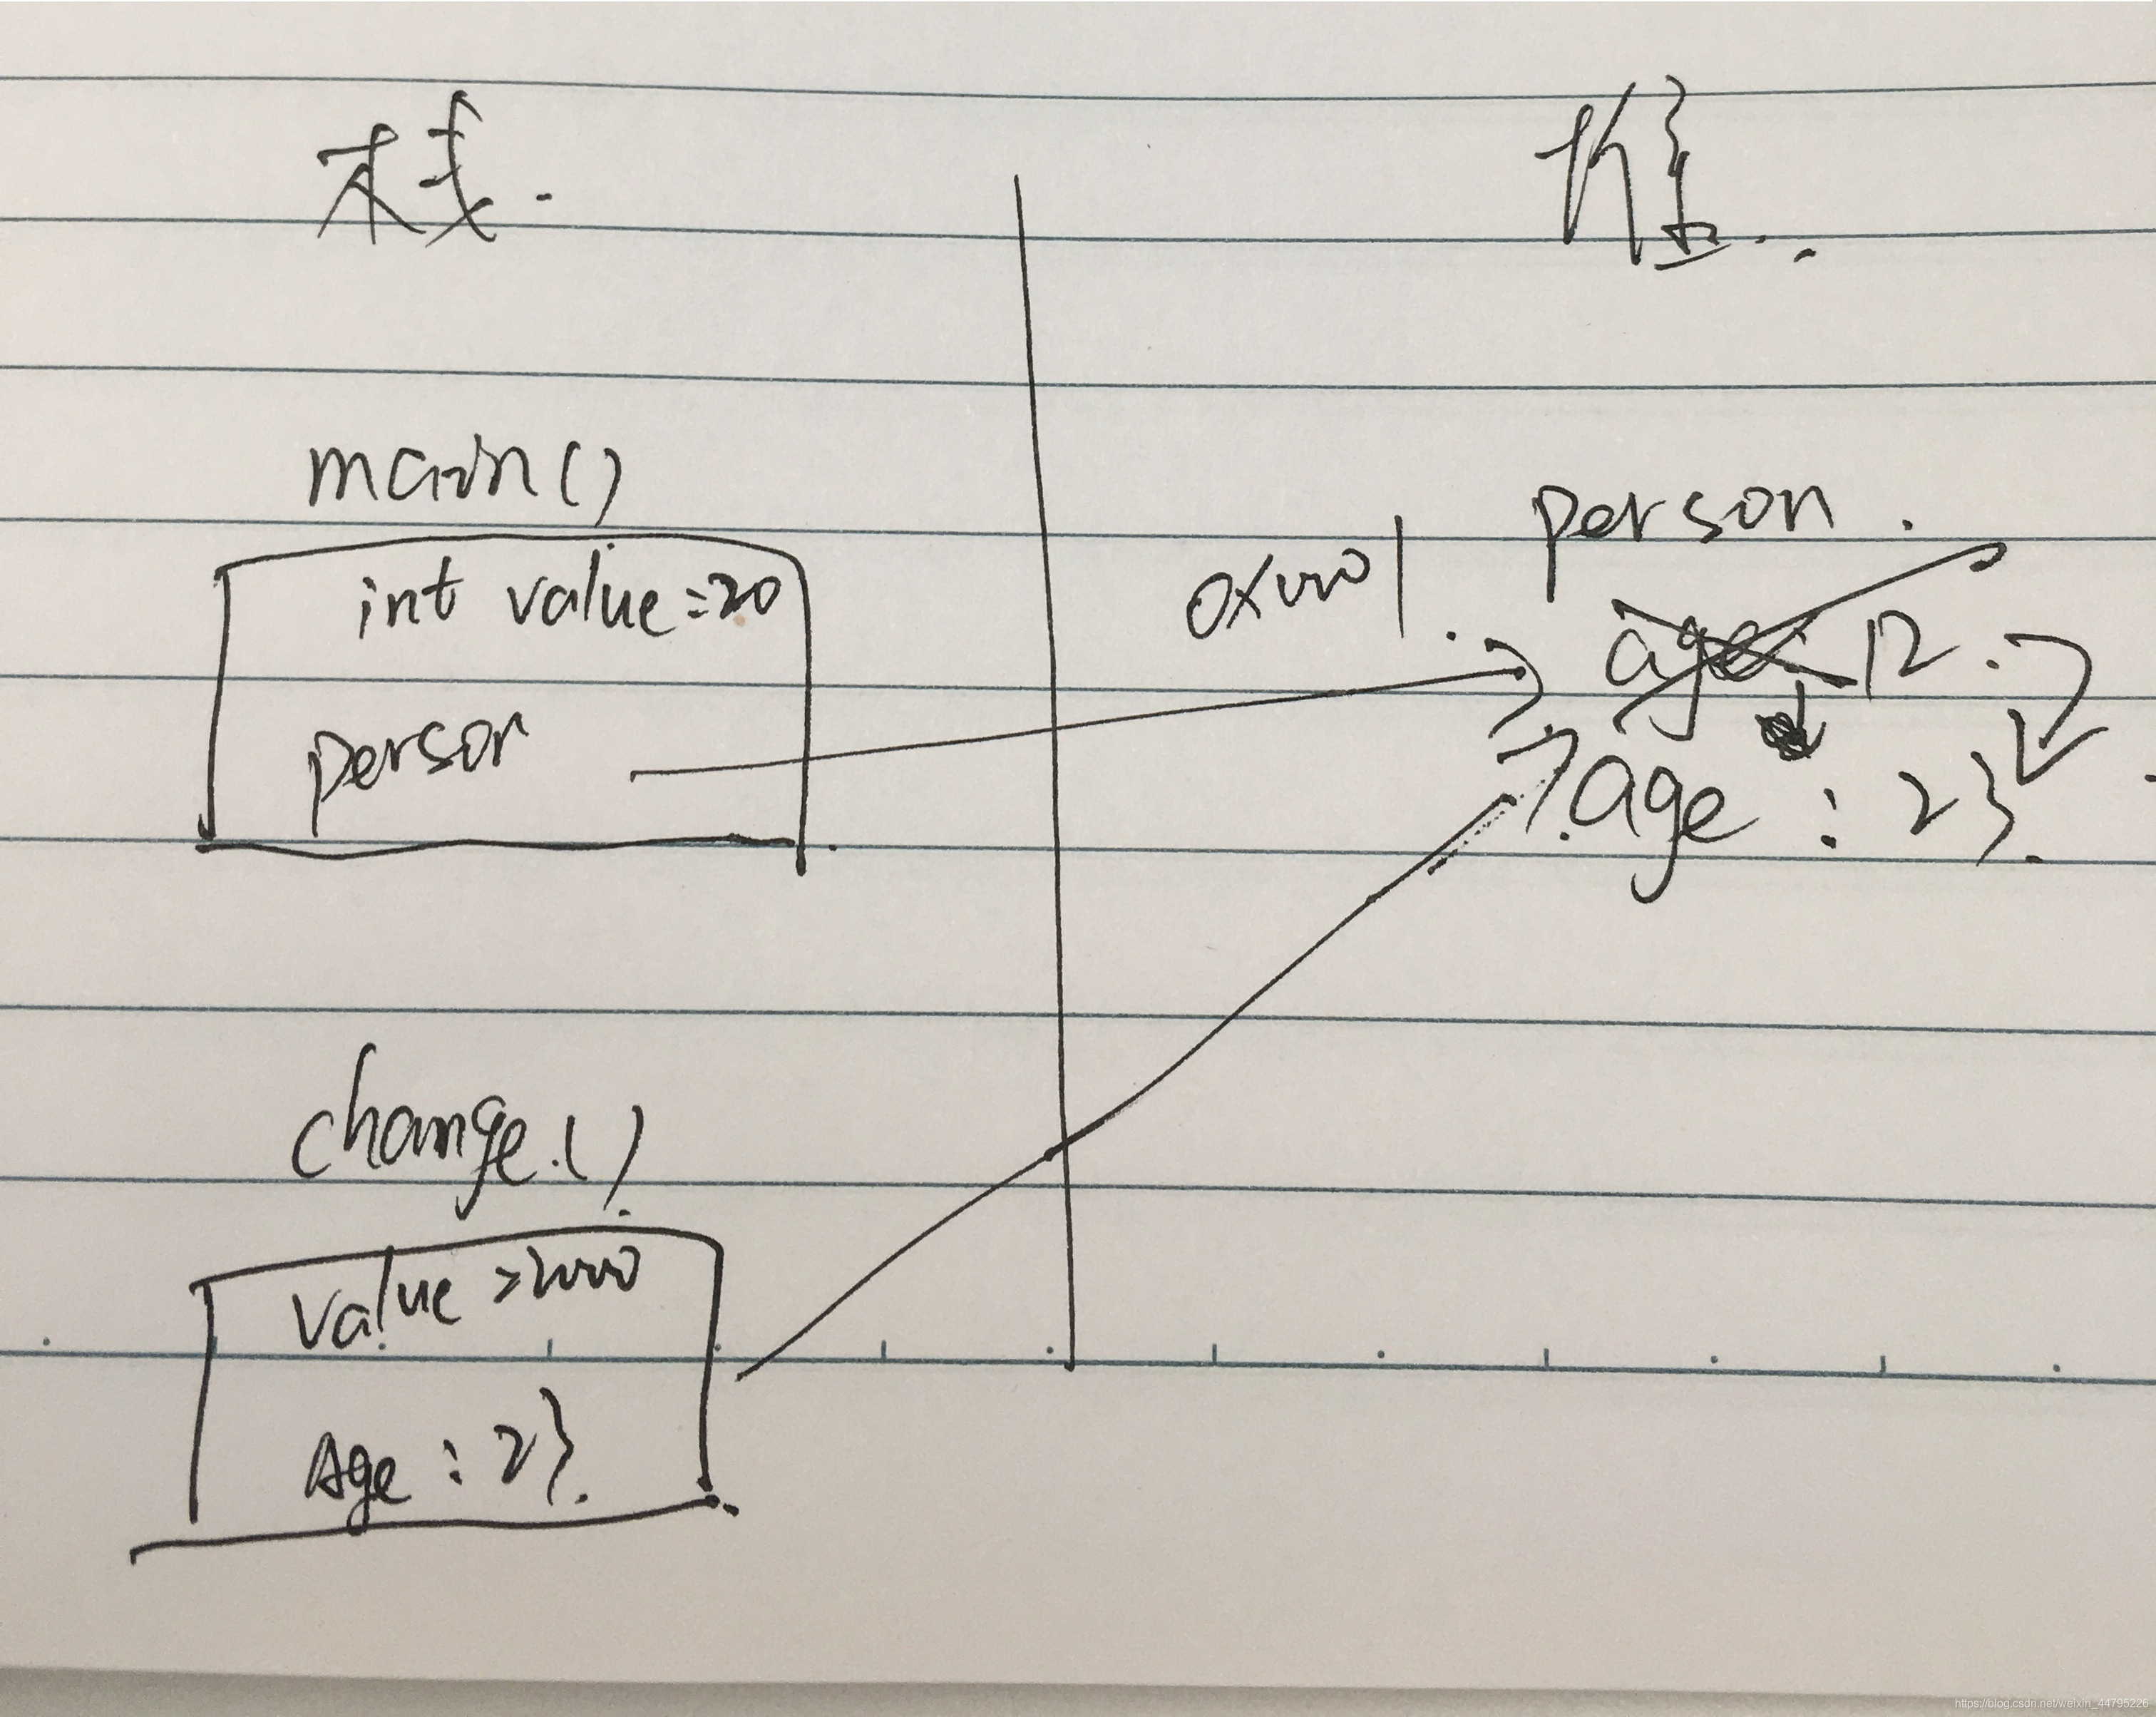 栈.
堆..
main()
int value=20
person
0x0001.
person.
age 12.
age : 23.
change.()
value =2000
Age : 23.
https://blog.csdn.net/weixin_44795226